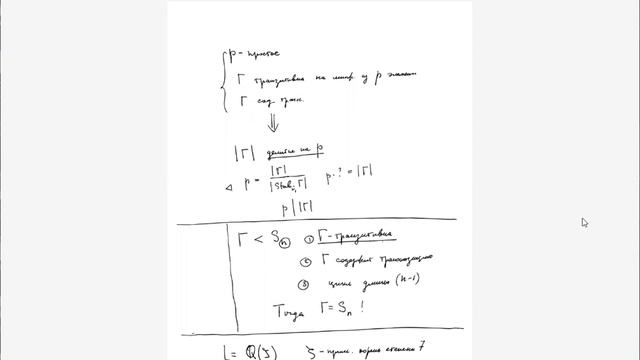 p - простое
Γ транзитивна на множ из p элемен
Γ сод. тран.
⇓
|Γ| делится на p
◁ p = |Γ| / |Stab₁ Γ| p·? = |Γ|
p | |Γ|
Γ < Sₙ ① Γ-транзитивна
② Γ содержит транспозицию
③ цикл длины (n-1)
Тогда Γ = Sₙ !
L = Q(ζ) ζ - прим. корень степени 7